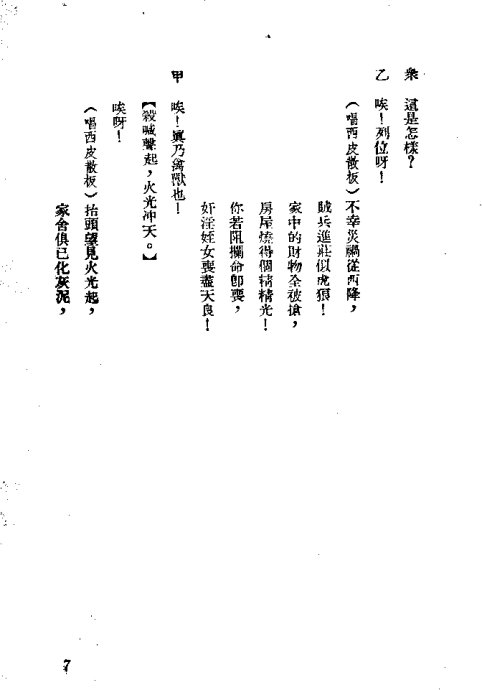 眾　這是怎樣？
乙　唉！列位呀！
（唱西皮散板）不幸災禍從西降，
賊兵進莊似虎狼！
家中的財物全被搶，
房屋燒得個精精光！
你若阻攔命卽喪，
奸淫姪女喪盡天良！
甲　唉！眞乃禽獸也！
【殺喊聲起，火光冲天。】
唉呀！
（唱西皮散板）抬頭望見火光起，
家舍俱已化灰泥，
7